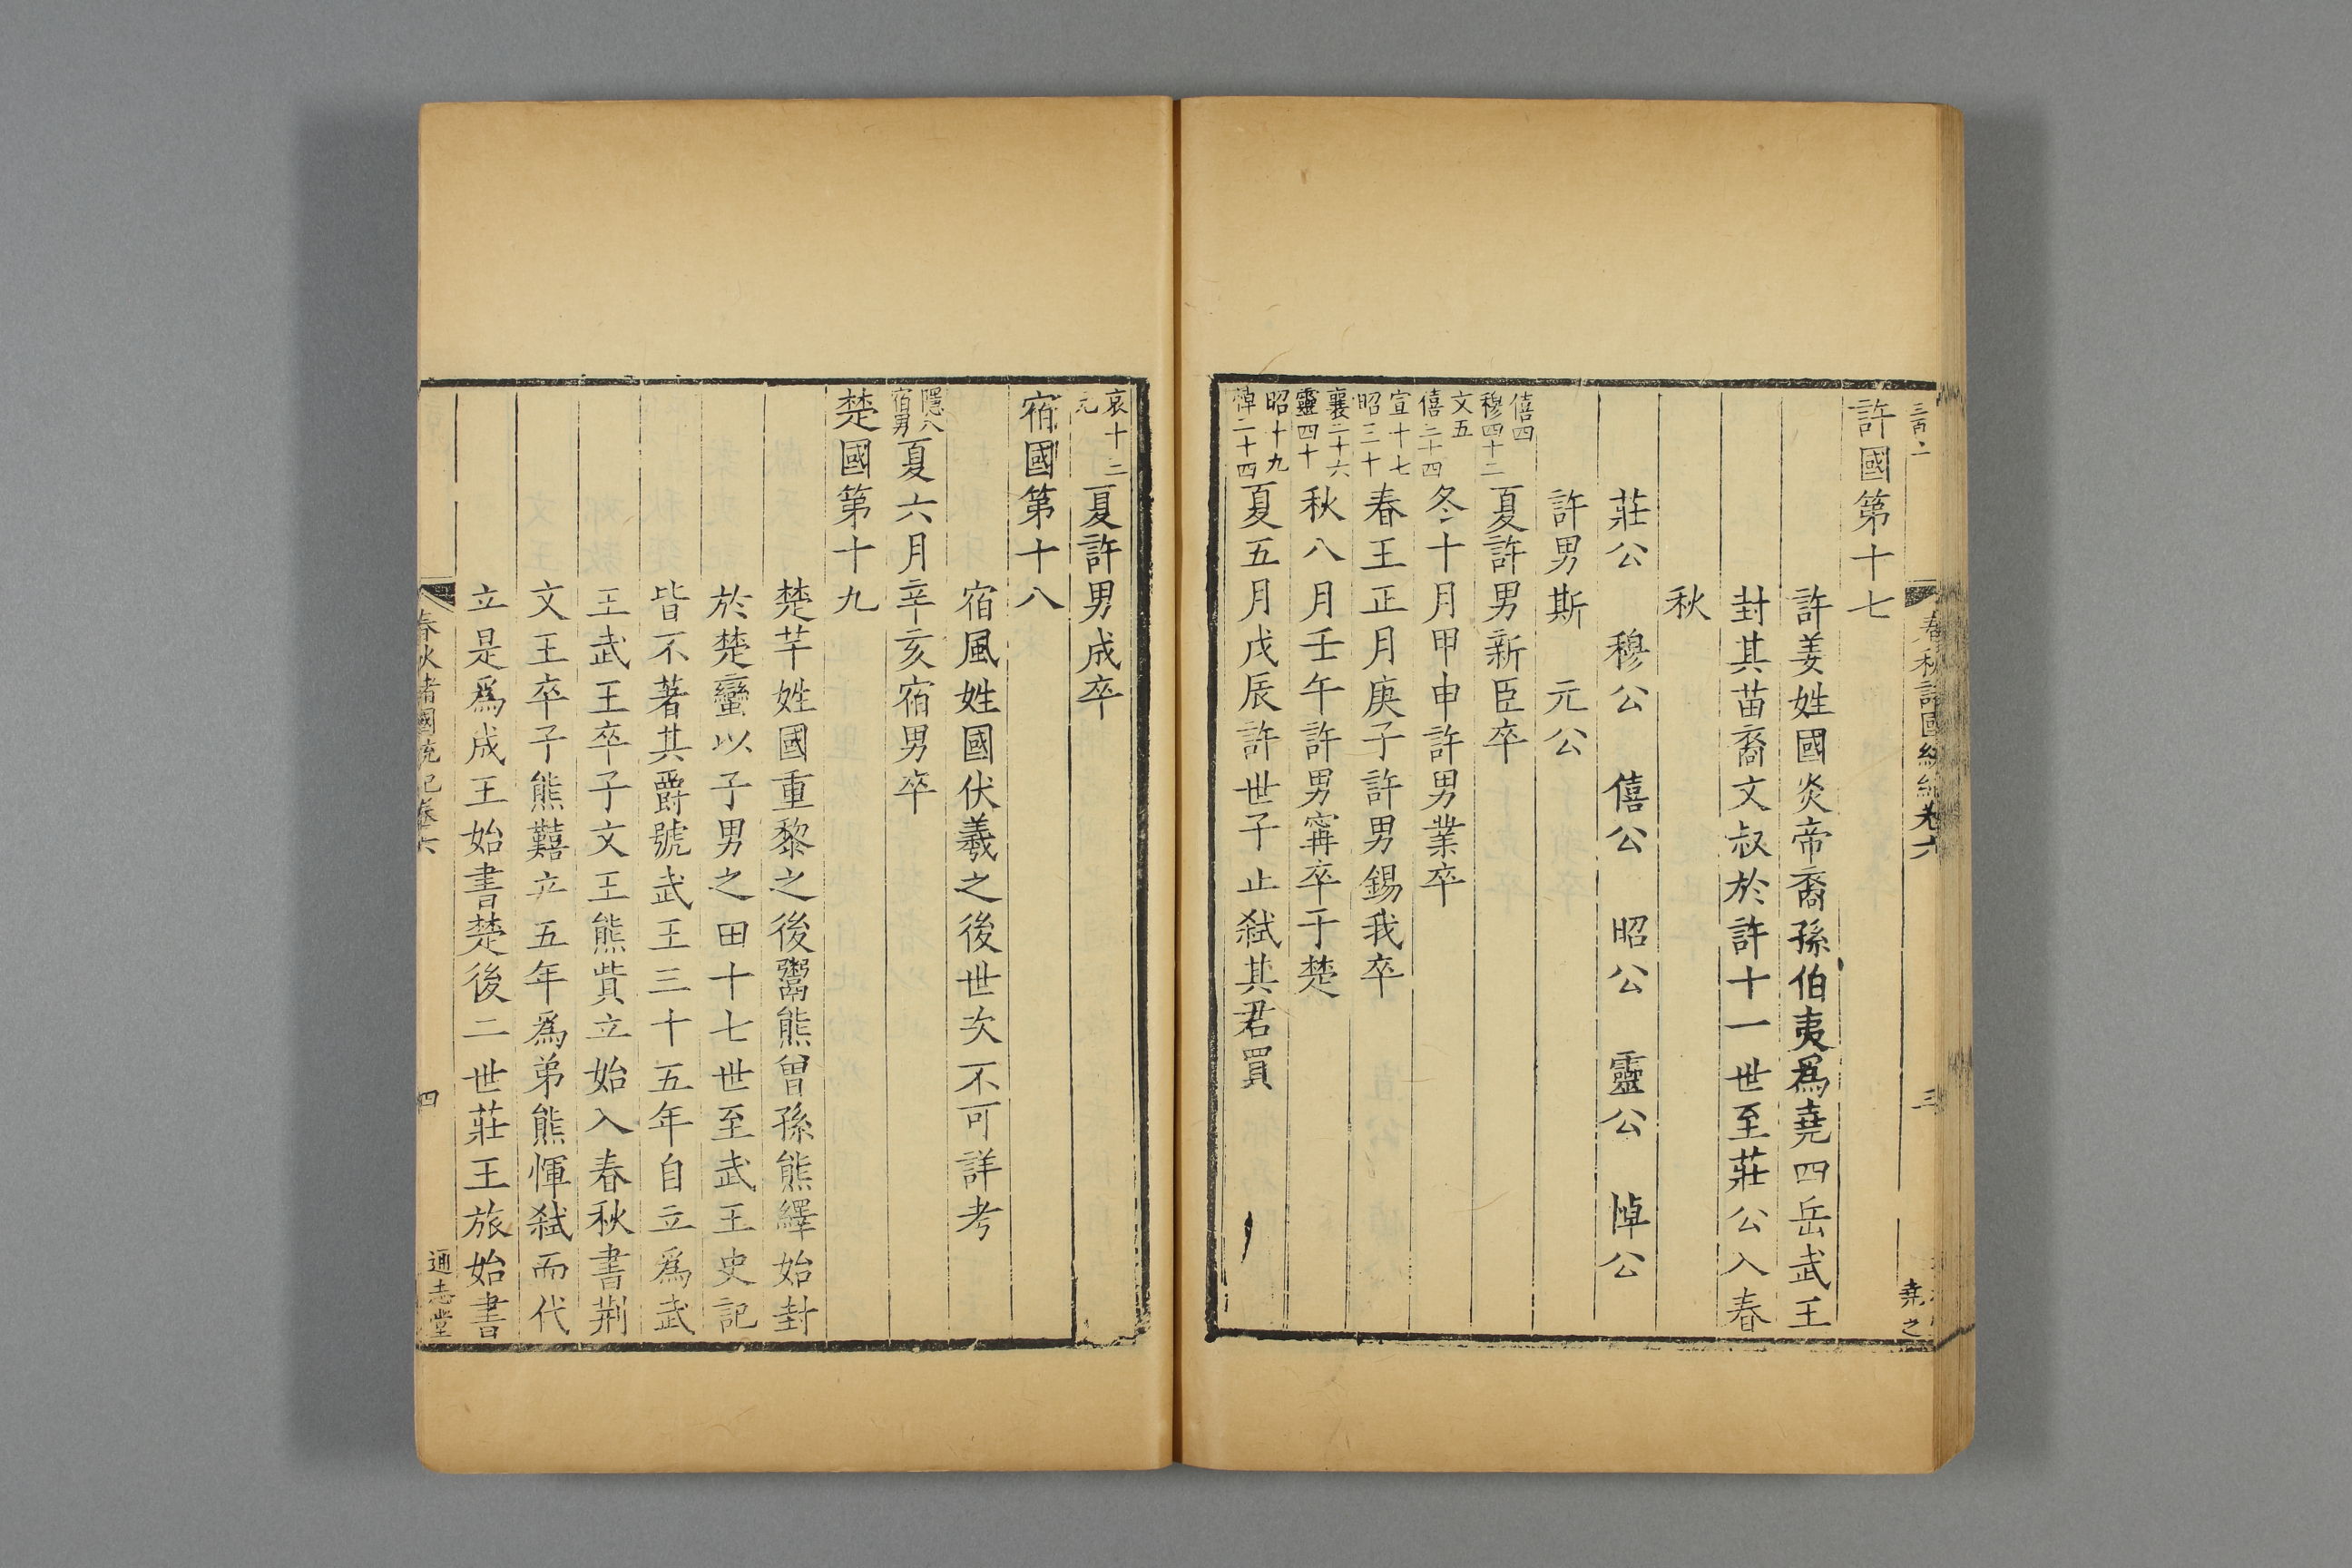 許國第十七
許姜姓國炎帝裔孫伯夷爲堯四岳武王
封其苗裔文叔於許十一世至莊公入春
秋
莊公 穆公 僖公 昭公 靈公 悼公
許男斯 元公
僖四
穆四十二
夏許男新臣卒
文五
僖三十四
冬十月甲申許男業卒
宣十七
昭三十
春王正月庚子許男錫我卒
襄二十六
靈四十
秋八月壬午許男甯卒于楚
昭十九
悼二十四
夏五月戊辰許世子止弑其君買
春秋諸國統紀卷六
三
堯之
哀十三
元
夏許男成卒
宿國第十八
宿風姓國伏羲之後世次不可詳考
隱八
宿男
夏六月辛亥宿男卒
楚國第十九
楚芊姓國重黎之後鬻熊曾孫熊繹始封
於楚蠻以子男之田十七世至武王史記
皆不著其爵號武王三十五年自立爲武
王武王卒子文王熊貲立始入春秋書荆
文王卒子熊囏立五年爲弟熊惲弑而代
立是爲成王始書楚後二世莊王旅始書
春秋諸國統紀卷六
四
通志堂